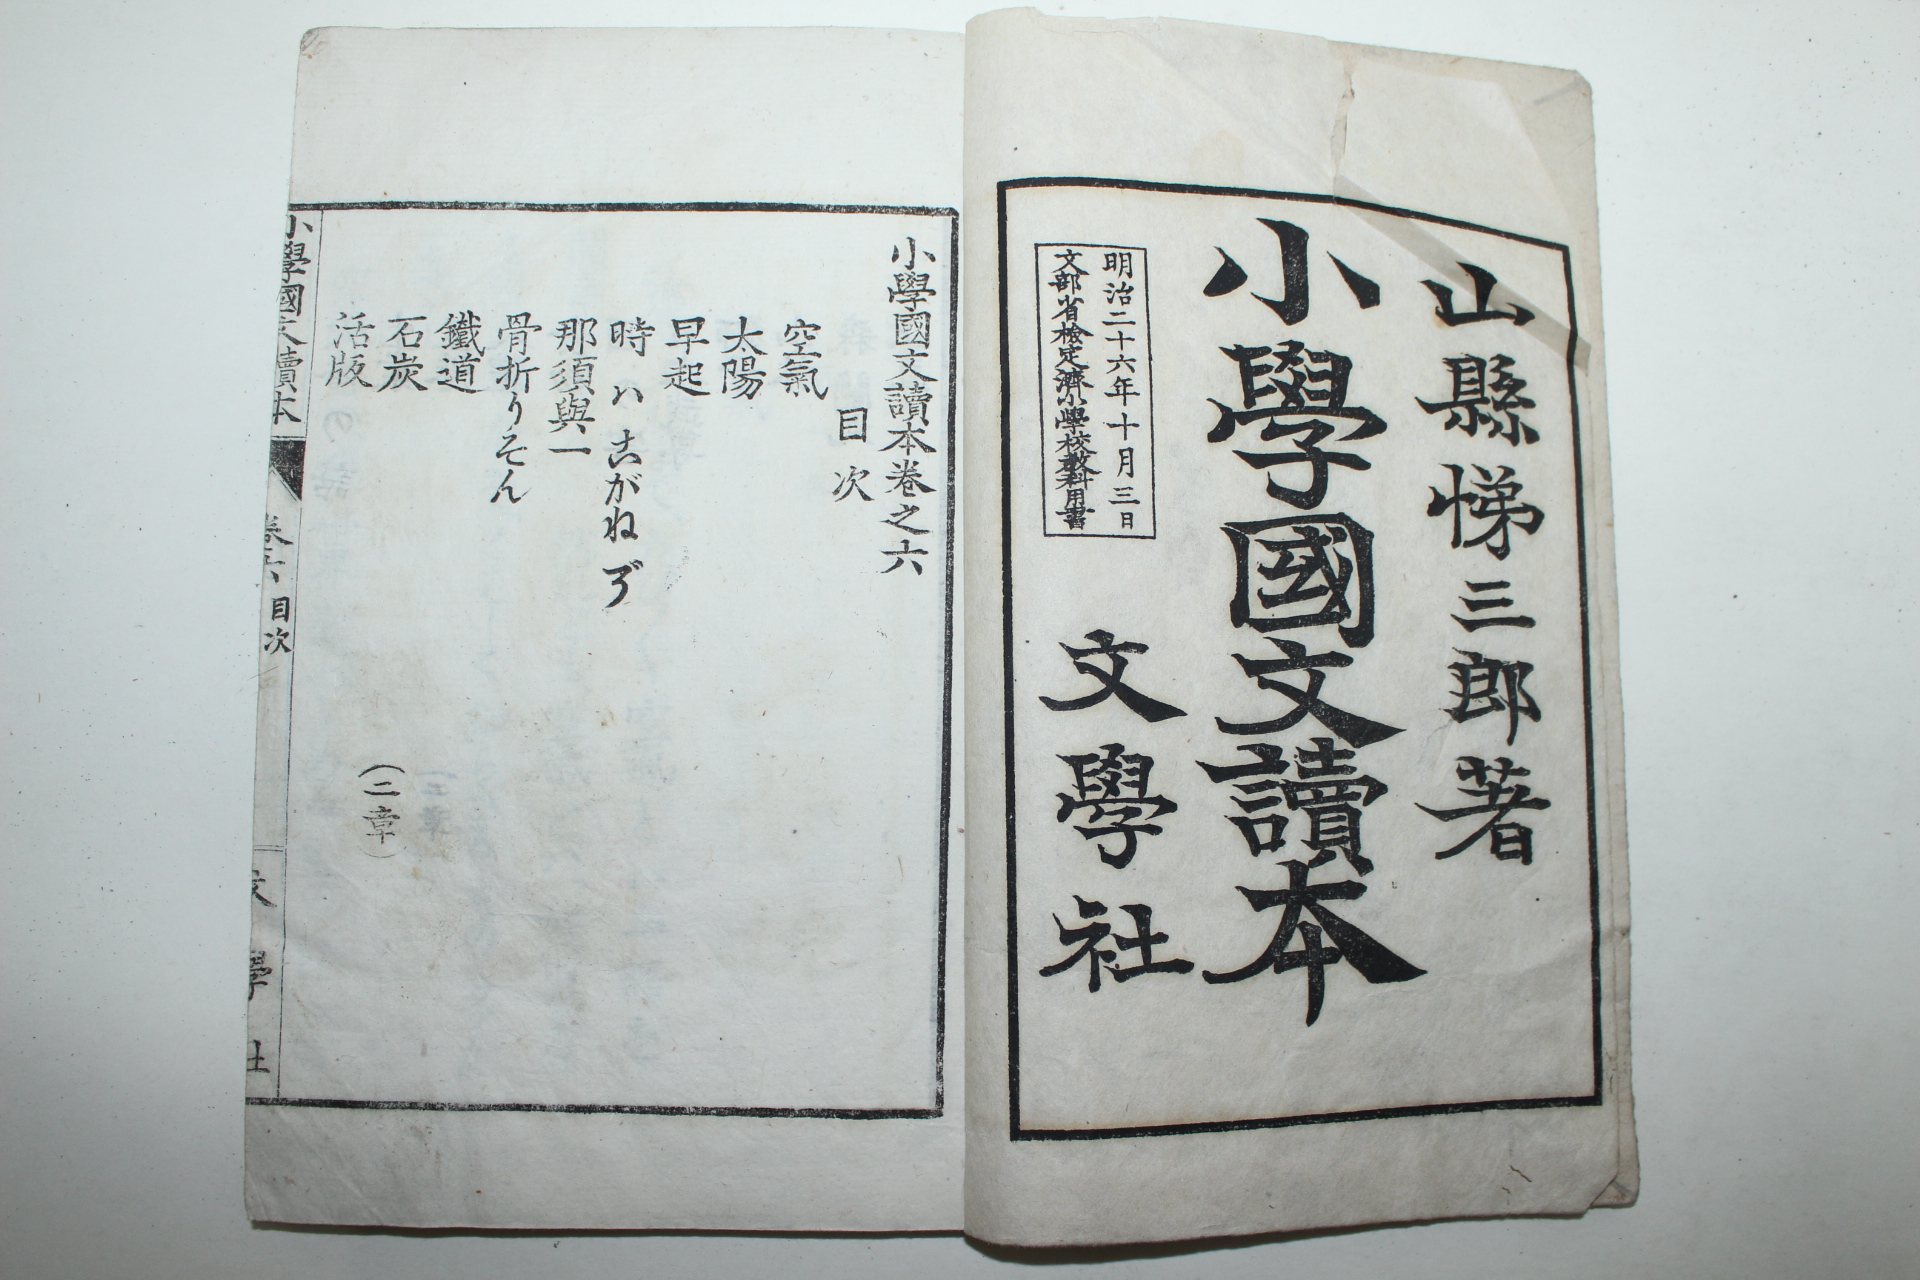 山縣悌三郎著
小學國文讀本
明治二十六年十月三日
文部省檢定濟小學校教科用書
文學社
小學國文讀本卷之六
目次
空氣
太陽
早起
時ハこがねぞ
那須與一
骨折りぞん
鐵道
石炭
活版
(二章)
小學國文讀本
卷六
目次
文學社